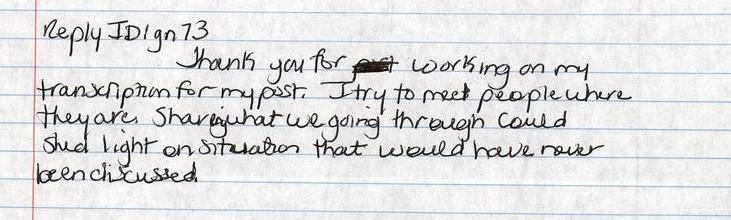 Reply ID 1gn73
Thank you for working on my
transcription for my post. I try to meet people where
they are. Sharing what we going through could
shed light on situation that would have never
been discussed.